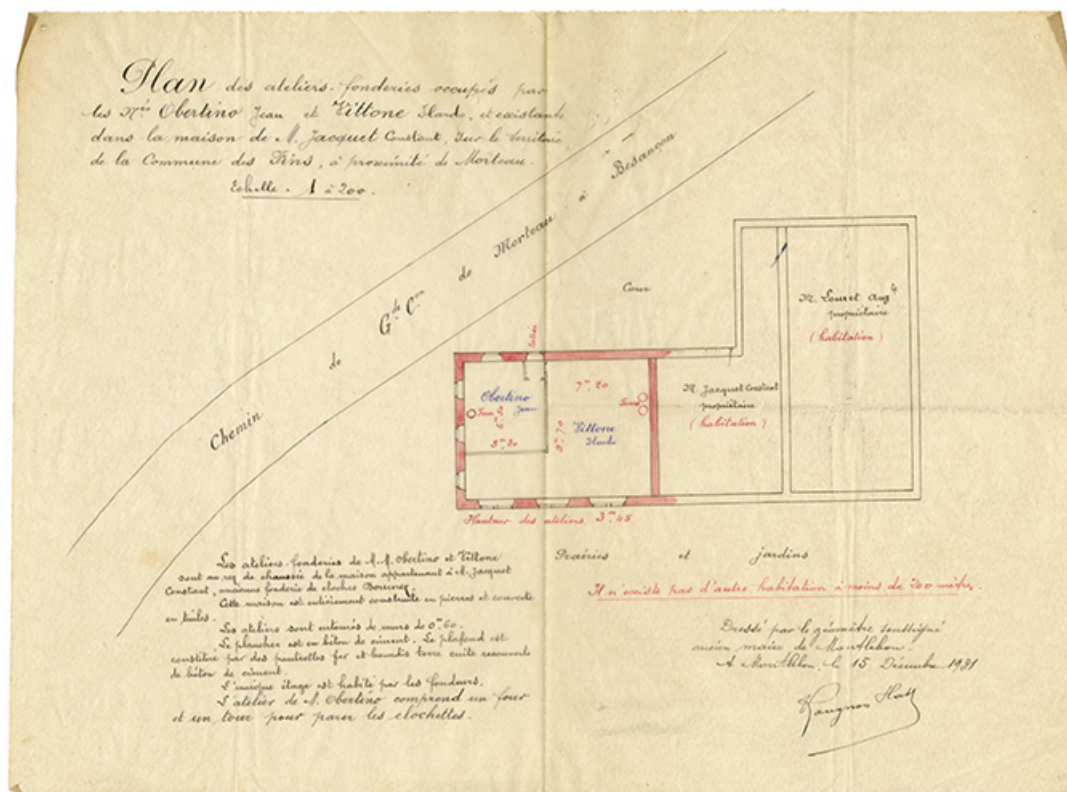 Plan des ateliers-fonderies occupés par
les Mrs Obertino Jean et Vittone, et existants
dans la maison de M. Jacquet Constant, sur le territoire
de la Commune des Fins, à proximité de Morteau.
Echelle - 1 à 200.
Chemin de Gde Con de Morteau à Besançon
Cour
M. Louvet Aug
propriétaire
(habitation)
Entrée
Obertino
Jean
Four
5m,20
7m,20
9m,70
Vittone
Fours
M. Jacquet Constant
propriétaire
(habitation)
Hauteur des ateliers 3m,45
Prairies et jardins
Il n'existe pas d'autre habitation à moins de 200 mètres.
Les ateliers-fonderies de M.M. Obertino et Vittone
sont au rez de chaussée de la maison appartenant à M. Jacquet
Constant, ancienne fonderie de cloches
Cette maison est entièrement construite en pierres et couverte
en tuiles.
Les ateliers sont entourés de murs de 0m,60.
Le plancher est en béton de ciment. Le plafond est
constitué par des poutrelles fer et hourdis terre cuite recouverts
de béton de ciment.
L'unique étage est habité par les fondeurs.
L'atelier de M. Obertino comprend un four
et un tour pour parer les clochettes.
Dressé par le géomètre soussigné
ancien maire de Montlebon.
A Montlebon, le 15 Décembre 1931